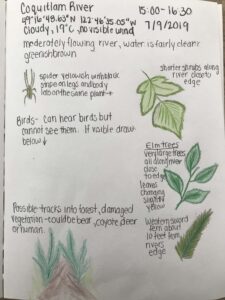 Coquitlam River
15:00-16:30
49°16'48.63"N 122°46'35.05"W
7/9/2019
Cloudy, 19°C, no visible wind
moderately flowing river, water is fairly clear
greenish brown
spider yellowish with black
stripe on legs and body
lots on the same plant →
shorter shrubs along
river close to
edge
Birds- can hear birds but
cannot see them. If visible draw
below ↓
Elm trees
very large trees
all along river
close
to edge
leaves
changing
slightly
yellow
Possible tracks into forest, damaged
vegetation - could be bear, coyote, deer
or human.
Western sword
fern about
10 feet from
rivers
edge